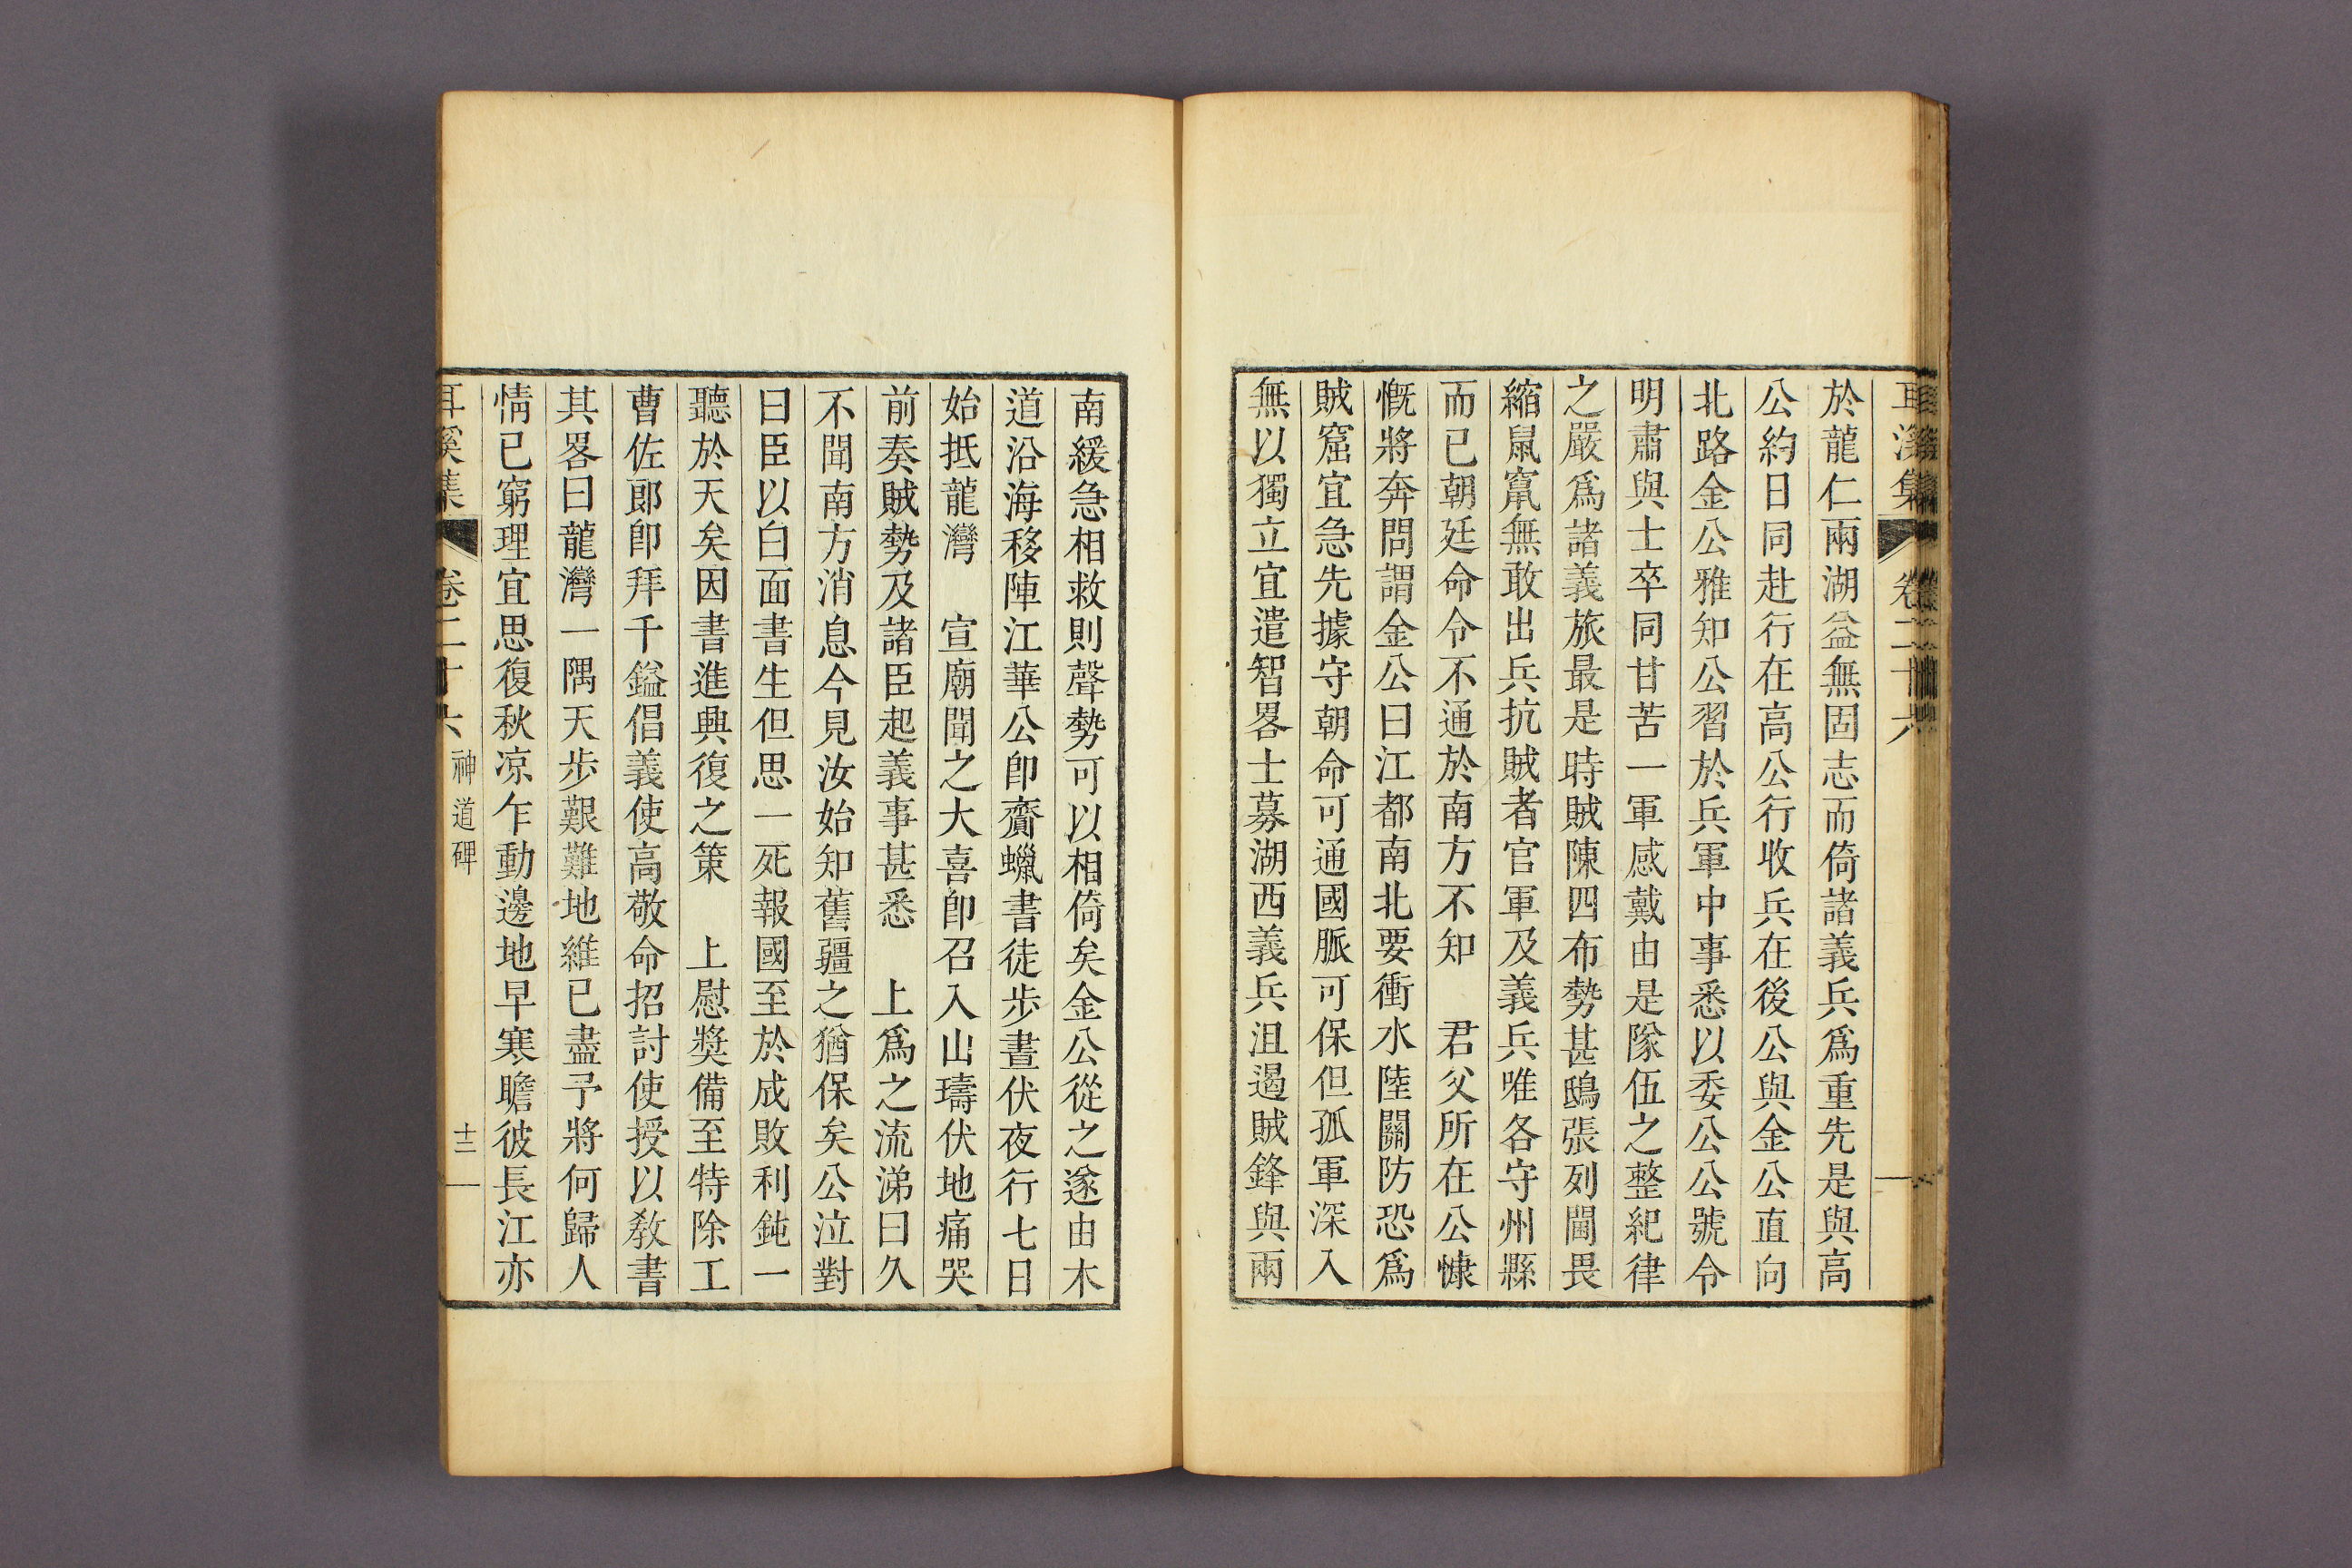 耳溪集 卷二十六
於龍仁兩湖益無固志而倚諸義兵爲重先是與高
公約日同赴行在高公行收兵在後公與金公直向
北路金公雅知公習於兵軍中事悉以委公公號令
明肅與士卒同甘苦一軍感戴由是隊伍之整紀律
之嚴爲諸義旅最是時賊陳四布勢甚鴟張列閫畏
縮鼠竄無敢出兵抗賊者官軍及義兵唯各守州縣
而已朝廷命令不通於南方不知 君父所在公慷
慨將奔問謂金公曰江都南北要衝水陸關防恐爲
賊窟宜急先據守朝命可通國脈可保但孤軍深入
無以獨立宜遣智畧士募湖西義兵沮遏賊鋒與兩
南緩急相救則聲勢可以相倚矣金公從之遂由木
道沿海移陣江華公卽齎蠟書徒步晝伏夜行七日
始抵龍灣 宣廟聞之大喜卽召入山璹伏地痛哭
前奏賊勢及諸臣起義事甚悉 上爲之流涕曰久
不聞南方消息今見汝始知舊疆之猶保矣公泣對
曰臣以白面書生但思一死報國至於成敗利鈍一
聽於天矣因書進興復之策 上慰奬備至特除工
曹佐郞卽拜千鎰倡義使高敬命招討使授以敎書
其畧曰龍灣一隅天步艱難地維已盡予將何歸人
情已窮理宜思復秋凉乍動邊地早寒瞻彼長江亦
耳溪集 卷二十六 神道碑 十二